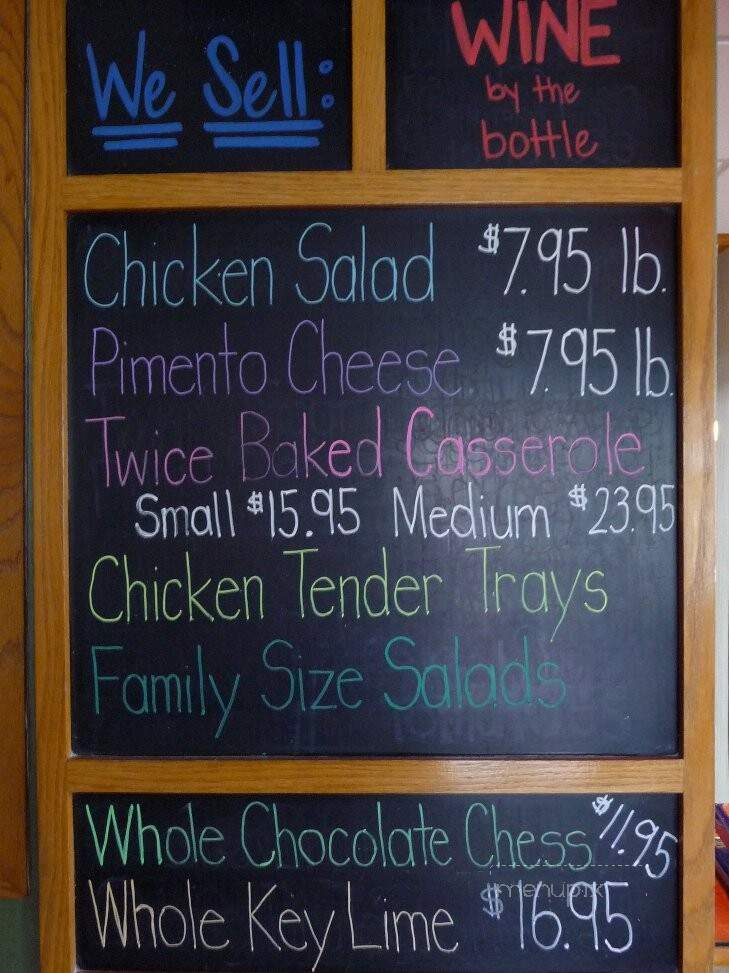 We Sell:
WINE
by the
bottle
Chicken Salad $7.95 lb.
Pimento Cheese $7.95 lb.
Twice Baked Casserole
Small $15.95 Medium $23.95
Chicken Tender Trays
Family Size Salads
Whole Chocolate Chess $11.95
Whole Key Lime $16.95